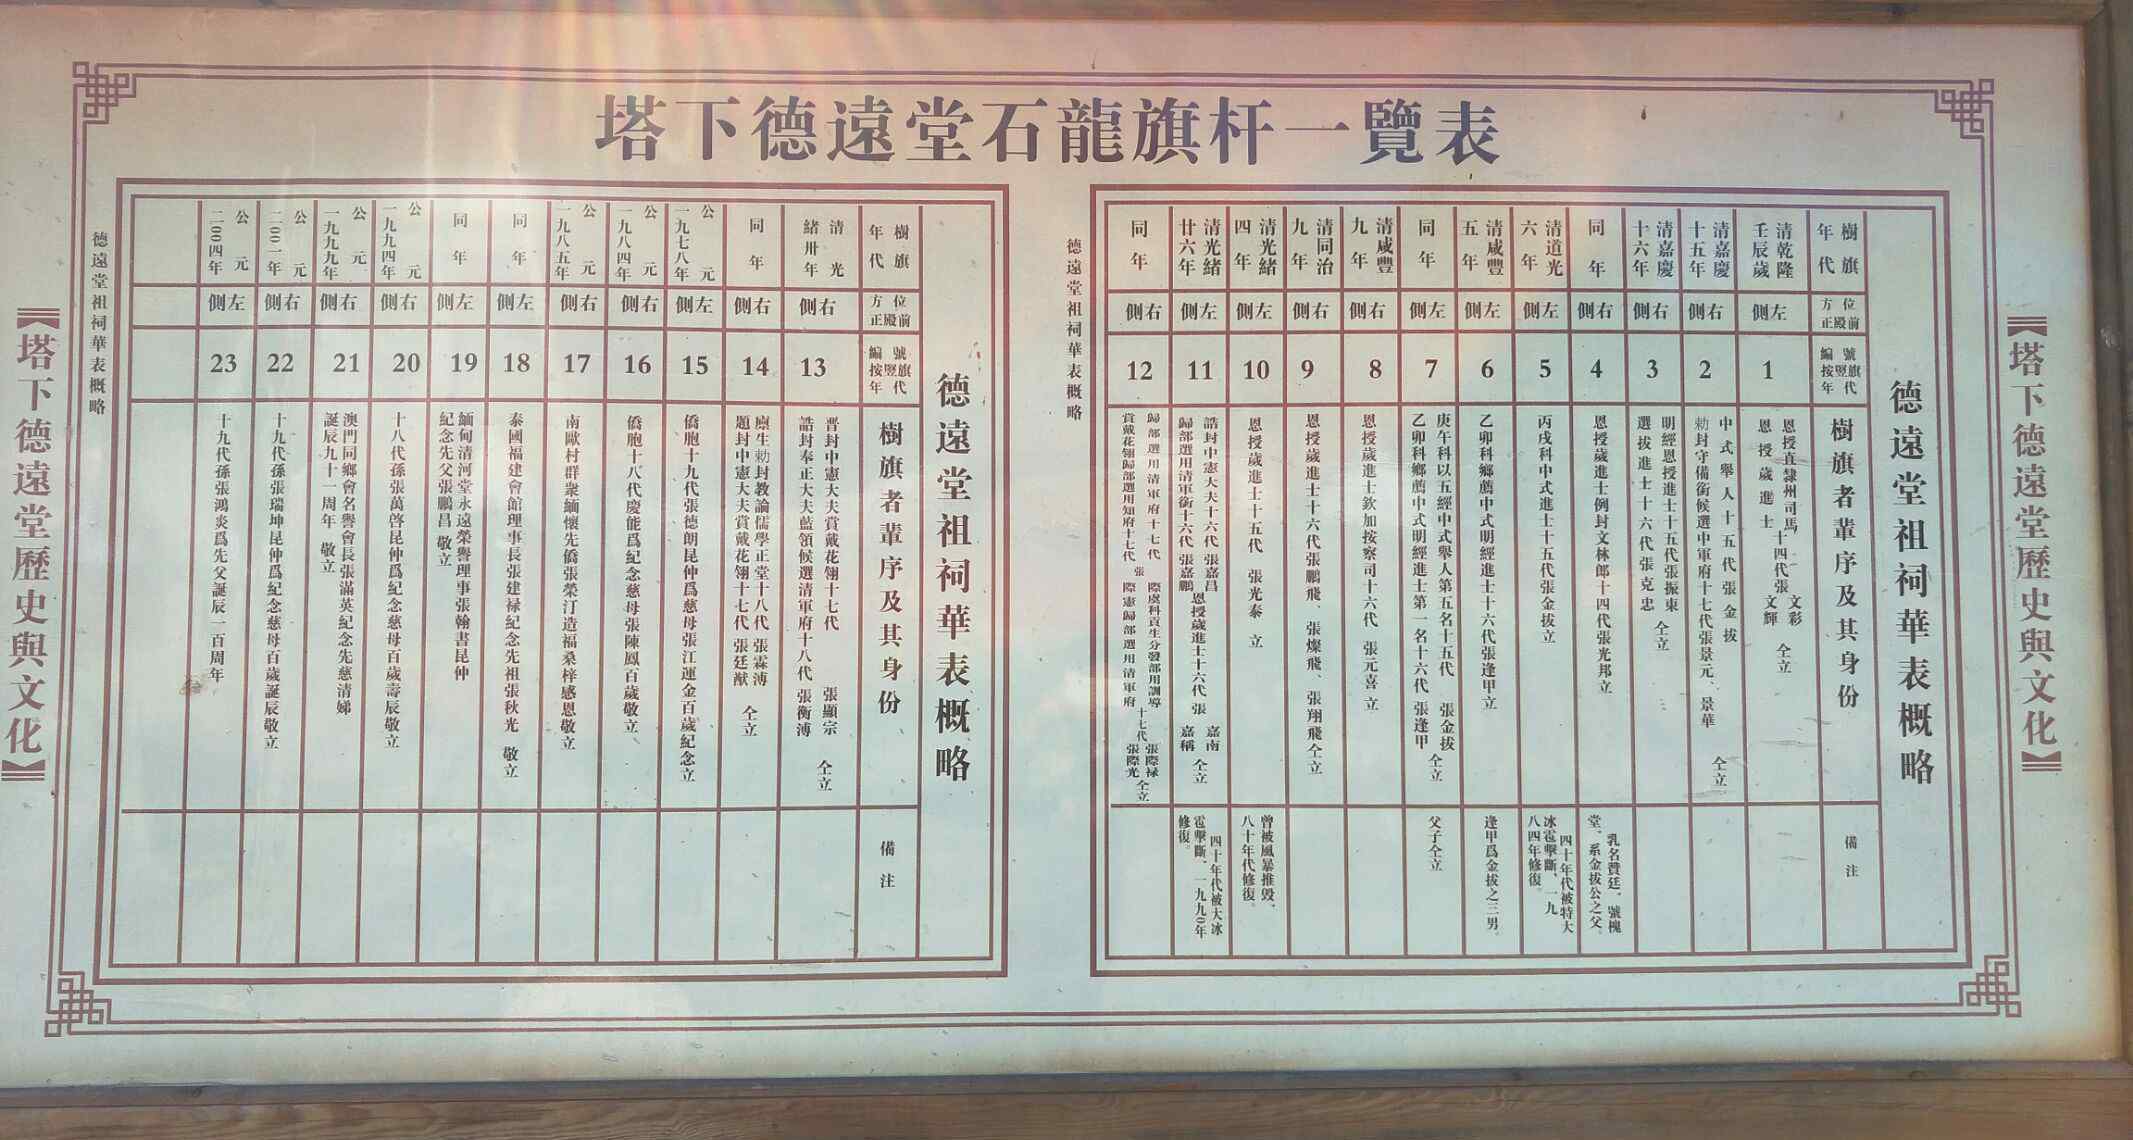 塔下德遠堂石龍旗杆一覽表
【塔下德遠堂歷史與文化】
德遠堂祖祠華表概略
樹旗
年代
方位
正殿前
編號
按豎旗
年代
樹旗者輩序及其身份
備注
清乾隆
壬辰歲
左側
1
恩授直隸州司馬
恩授歲進士
十四代張
文彩
文輝
仝立
清嘉慶
十五年
右側
2
中式舉人十五代張金拔
勅封守備銜候選中軍府十七代張景元、景華
仝立
清嘉慶
十六年
右側
3
明經恩授進士十五代張振東
選拔進士十六代張克忠
仝立
同年
右側
4
恩授歲進士例封文林郎十四代張光邦立
乳名賛廷、號槐
堂、系金拔公之父。
清道光
六年
左側
5
丙戌科中式進士十五代張金拔立
四十年代被特大
冰雹擊斷、一九
八四年修復。
清咸豐
五年
左側
6
乙卯科鄉薦中式明經進士十六代張逢甲立
逢甲爲金拔之三男。
同年
左側
7
庚午科以五經中式舉人第五名十五代張金拔
乙卯科鄉薦中式明經進士第一名十六代張逢甲
仝立
父子仝立
清咸豐
九年
右側
8
恩授歲進士欽加按察司十六代張元喜立
清同治
九年
右側
9
恩授歲進士十六代張鵬飛、張燦飛、張翔飛仝立
清光緒
四年
左側
10
恩授歲進士十五代張光泰立
曾被風暴摧毀、
八十年代修復。
清光緒
廿六年
左側
11
誥封中憲大夫十六代張嘉昌
歸部選用清軍銜十六代張嘉鵬
恩授歲進士十六代張
嘉南
嘉稱
仝立
四十年代被大冰
雹擊斷、一九九0年
修復。
同年
右側
12
歸部選用清軍府十七代
賞戴花翎歸部選用知府十七代
張
際虞科貢生分發部用訓導
際憲歸部選用清軍府
十七代
張際禄
張際光
仝立
德遠堂祖祠華表概略
德遠堂祖祠華表概略
樹旗
年代
方位
正殿前
編號
按豎旗
年代
樹旗者輩序及其身份
備注
清光
緒卅年
右側
13
晋封中憲大夫賞戴花翎十七代張顯宗
誥封奉正大夫藍領候選清軍府十八代張衡溥
仝立
同年
右側
14
廩生勅封教諭儒學正堂十八代張霖溥
題封中憲大夫賞戴花翎十七代張廷猷
仝立
公元
一九七八年
左側
15
僑胞十九代張德朗昆仲爲慈母張江運金百歲紀念立
公元
一九八四年
右側
16
僑胞十八代慶能爲紀念慈母張陳鳳百歲敬立
公元
一九八五年
右側
17
南歐村群衆緬懷先僑張榮汀造福桑梓感恩敬立
同年
左側
18
泰國福建會館理事長張建禄紀念先祖張秋光敬立
同年
左側
19
緬甸清河堂永遠榮譽理事張翰書昆仲
紀念先父張鵬昌敬立
公元
一九九四年
右側
20
十八代孫張萬啓昆仲爲紀念慈母百歲壽辰敬立
公元
一九九九年
右側
21
澳門同鄉會名譽會長張滿英紀念先慈清娣
誕辰九十一周年敬立
公元
二00一年
右側
22
十九代孫張瑞坤昆仲爲紀念慈母百歲誕辰敬立
公元
二00四年
左側
23
十九代孫張鴻炎爲先父誕辰一百周年
德遠堂祖祠華表概略
【塔下德遠堂歷史與文化】